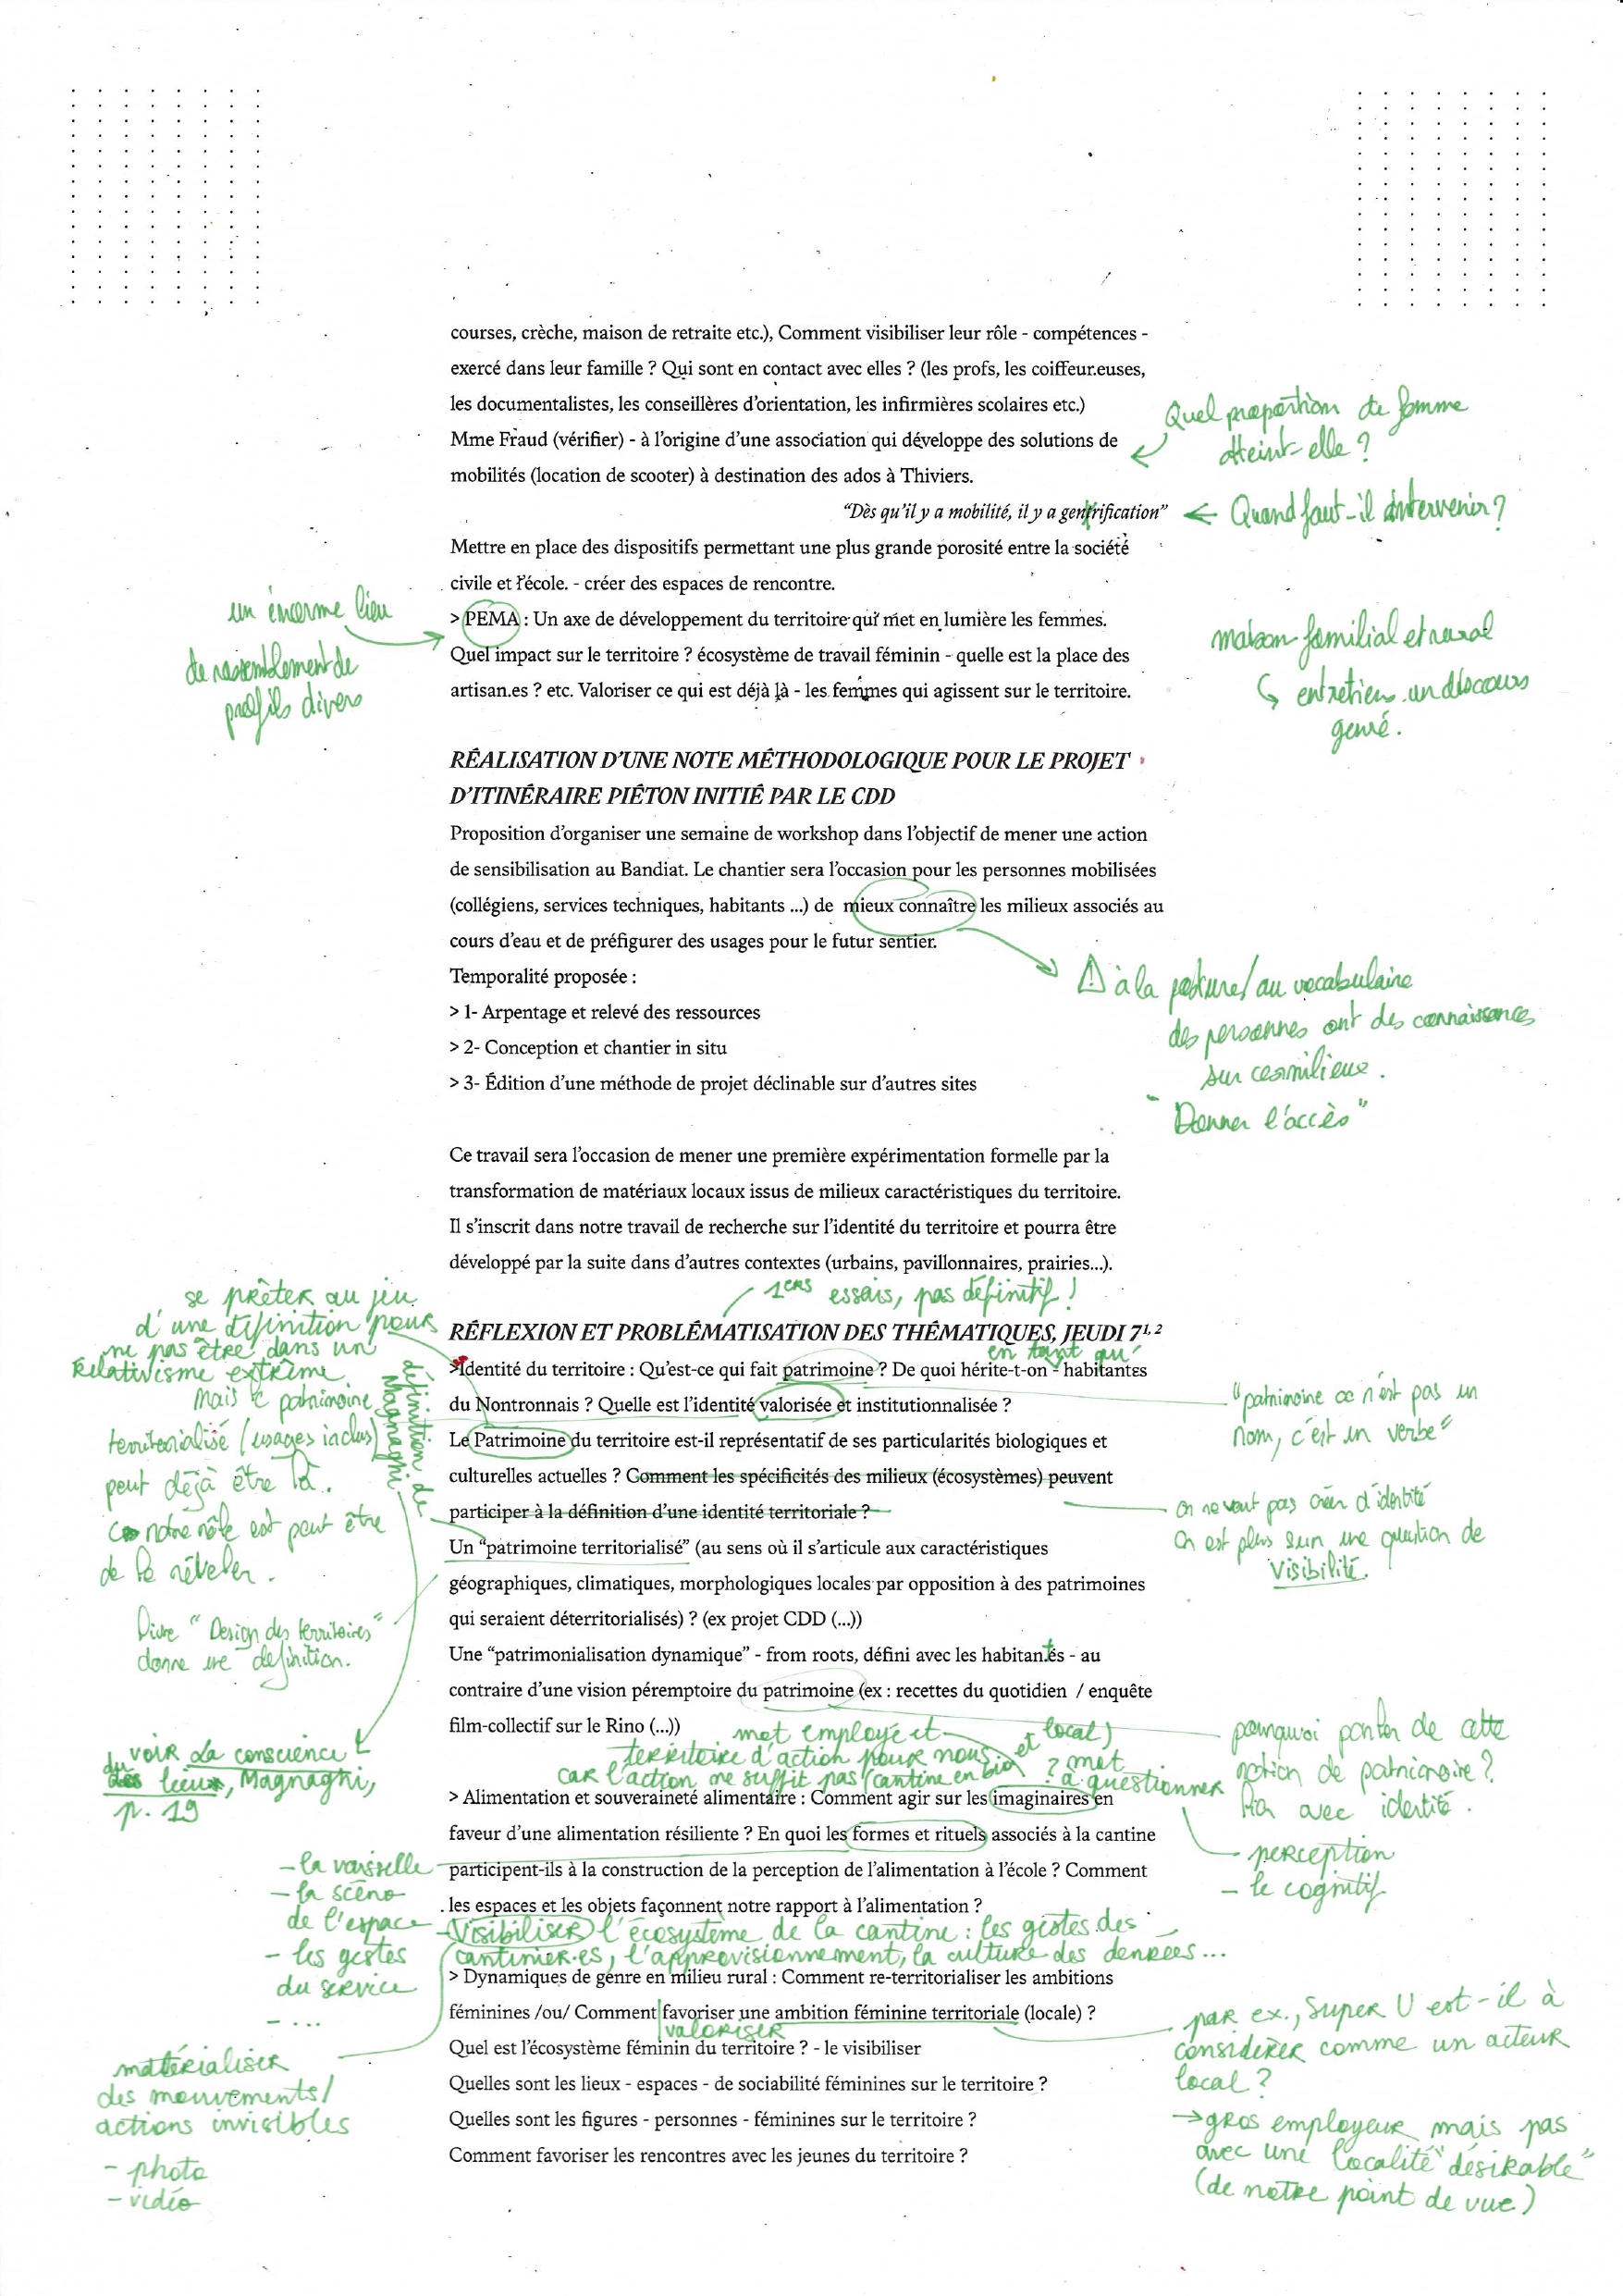 courses, crèche, maison de retraite etc.), Comment visibiliser leur rôle - compétences -
exercé dans leur famille ? Qui sont en contact avec elles ? (les profs, les coiffeur.euses,
les documentalistes, les conseillères d'orientation, les infirmières scolaires etc.)
Quel proportion de femme
atteint-elle ?
Mme Fraud (vérifier) - à l'origine d'une association qui développe des solutions de
mobilités (location de scooter) à destination des ados à Thiviers.
"Dès qu'il y a mobilité, il y a gentrification"
Quand faut-il intervenir ?
Mettre en place des dispositifs permettant une plus grande porosité entre la société
civile et l'école. - créer des espaces de rencontre.
un énorme lieu
de rassemblement de
profils divers
> PEMA : Un axe de développement du territoire qui met en lumière les femmes.
Quel impact sur le territoire ? écosystème de travail féminin - quelle est la place des
artisan.es ? etc. Valoriser ce qui est déjà là - les femmes qui agissent sur le territoire.
maison familial et rural
entretiens un discours
genré.
RÉALISATION D'UNE NOTE MÉTHODOLOGIQUE POUR LE PROJET
D'ITINÉRAIRE PIÉTON INITIÉ PAR LE CDD
Proposition d'organiser une semaine de workshop dans l'objectif de mener une action
de sensibilisation au Bandiat. Le chantier sera l'occasion pour les personnes mobilisées
(collégiens, services techniques, habitants ...) de mieux connaître les milieux associés au
cours d'eau et de préfigurer des usages pour le futur sentier.
⚠ à la posture/au vocabulaire
des personnes ont des connaissances
sur ces milieux.
"Donner l'accès"
Temporalité proposée :
> 1- Arpentage et relevé des ressources
> 2- Conception et chantier in situ
> 3- Édition d'une méthode de projet déclinable sur d'autres sites
Ce travail sera l'occasion de mener une première expérimentation formelle par la
transformation de matériaux locaux issus de milieux caractéristiques du territoire.
Il s'inscrit dans notre travail de recherche sur l'identité du territoire et pourra être
développé par la suite dans d'autres contextes (urbains, pavillonnaires, prairies...).
1ers essais, pas définitif !
RÉFLEXION ET PROBLÉMATISATION DES THÉMATIQUES, JEUDI 7¹, ²
se prêter au jeu
d'une définition pour
ne pas être dans un
relativisme extrême
Mais le patrimoine
territorialisé (usages inclus)
peut déjà être là.
notre rôle est peut être
de le révéler.
définition de
Magnaghi
Livre "Design des territoires"
donne une définition.
voir La conscience
du lieu, Magnaghi,
p. 19
en tant qu'
>Identité du territoire : Qu'est-ce qui fait patrimoine ? De quoi hérite-t-on - habitantes
du Nontronnais ? Quelle est l'identité valorisée et institutionnalisée ?
Le Patrimoine du territoire est-il représentatif de ses particularités biologiques et
culturelles actuelles ? Comment les spécificités des milieux (écosystèmes) peuvent
participer à la définition d'une identité territoriale ?
Un "patrimoine territorialisé" (au sens où il s'articule aux caractéristiques
géographiques, climatiques, morphologiques locales par opposition à des patrimoines
qui seraient déterritorialisés) ? (ex projet CDD (...))
Une "patrimonialisation dynamique" - from roots, défini avec les habitan.tes - au
contraire d'une vision péremptoire du patrimoine (ex : recettes du quotidien / enquête
film-collectif sur le Rino (...))
"patrimoine ce n'est pas un
nom, c'est un verbe"
On ne veut pas créer d'identité
On est plus sur une question de
visibilité.
pourquoi parler de cette
notion de patrimoine ?
lien avec identité.
mot employé et
territoire d'action pour nous
car l'action ne suffit pas (cantine en bio et local)
? mot
à questionner
- perception
- le cognitif
> Alimentation et souveraineté alimentaire : Comment agir sur les imaginaires en
faveur d'une alimentation résiliente ? En quoi les formes et rituels associés à la cantine
participent-ils à la construction de la perception de l'alimentation à l'école ? Comment
les espaces et les objets façonnent notre rapport à l'alimentation ?
- la vaisselle
- la scéno
de l'espace
- les gestes
du service
- ...
- Visibiliser l'écosystème de la cantine : les gestes des
cantinier.es, l'approvisionnement, la culture des denrées...
matérialiser
des mouvements/
actions invisibles
- photo
- vidéo
> Dynamiques de genre en milieu rural : Comment re-territorialiser les ambitions
féminines /ou/ Comment favoriser une ambition féminine territoriale (locale) ?
valoriser
Quel est l'écosystème féminin du territoire ? - le visibiliser
Quelles sont les lieux - espaces - de sociabilité féminines sur le territoire ?
Quelles sont les figures - personnes - féminines sur le territoire ?
Comment favoriser les rencontres avec les jeunes du territoire ?
par ex., Super U est-il à
considérer comme un acteur
local ?
→ gros employeur mais pas
avec une localité "désirable"
(de notre point de vue)